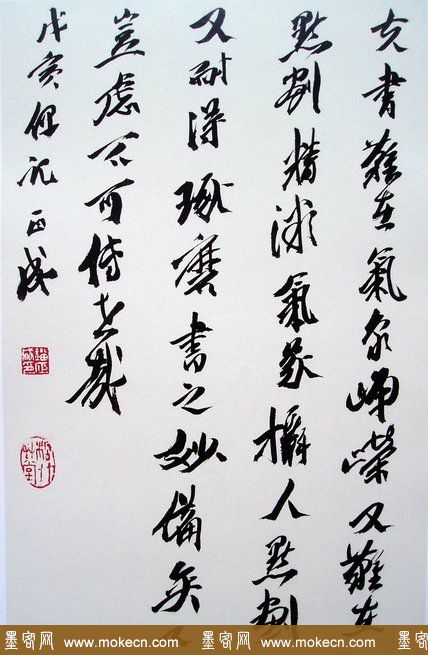 夫書難在氣象崢嶸又難在
點劃精微氣象攝人點劃
又耐得琢磨書之妙備矣
豈虑不可傳世哉
戊寅 沈正
墨客网 www.mokecn.com 墨客网 www.mokecn.com 墨客网